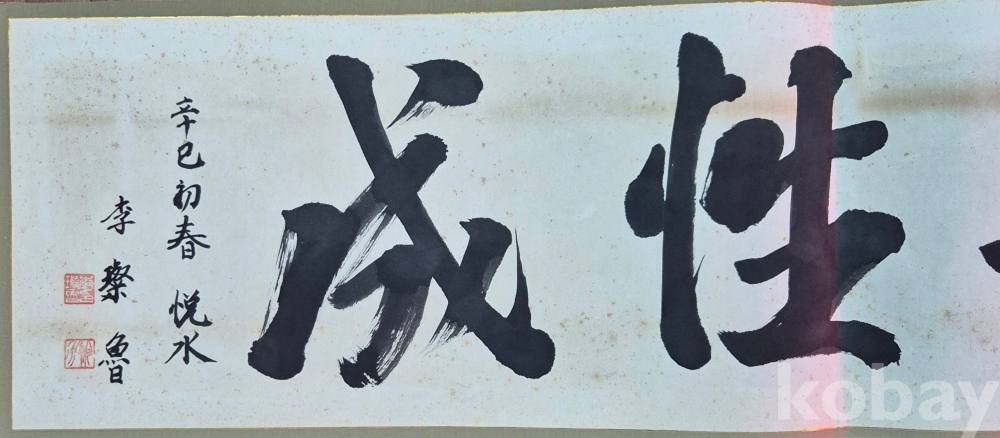 性成
辛巳初春 悅水
李燦魯
kobay